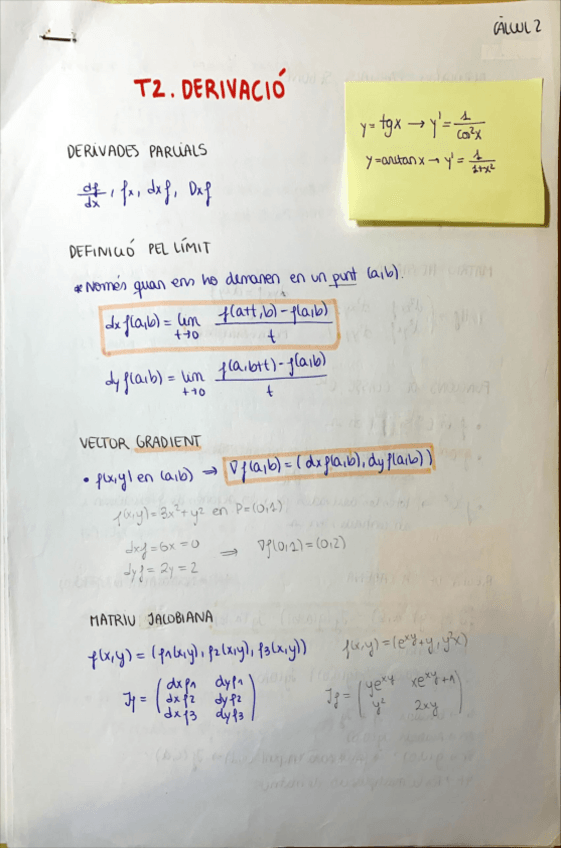 CÀLCUL 2
T2. DERIVACIÓ
y = tgx → y' = 1/cos²x
y = arctan x → y' = 1/1+x²
DERIVADES PARCIALS
df/dx, fx, dxf, Dxf
DEFINICIÓ PEL LÍMIT
* Només quan ens ho demanen en un punt (a,b).
dxf(a,b) = lim t→0 f(a+t,b) - f(a,b) / t
dyf(a,b) = lim t→0 f(a,b+t) - f(a,b) / t
VECTOR GRADIENT
• f(x,y) en (a,b) ⇒ ∇f(a,b) = (dxf(a,b), dyf(a,b))
f(x,y) = 3x² + y² en P=(0,1)
dxf = 6x = 0
dyf = 2y = 2
⇒ ∇f(0,2) = (0,2)
MATRIU JACOBIANA
f(x,y) = (f1(x,y), f2(x,y), f3(x,y))
f(x,y) = (e^xy + y, y²x)
Jf = ( dxf1 dyf1
dxf2 dyf2
dxf3 dyf3 )
Jf = ( ye^xy xe^xy + 1
y² 2xy )